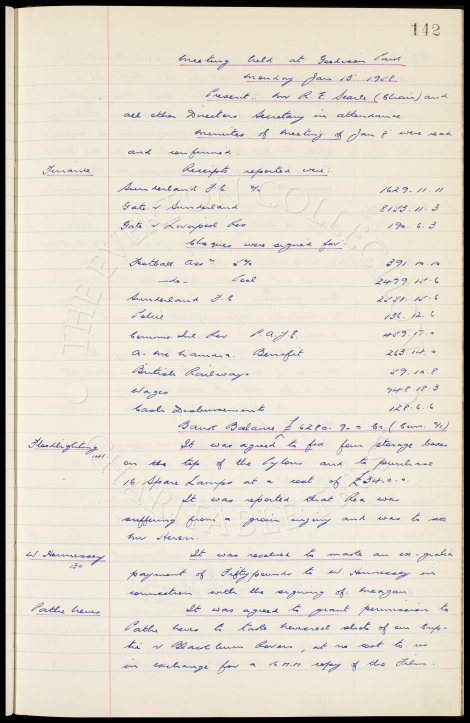 142
Meeting held at Goodison Park
Monday Jan 13 1958
Present: Mr R. E. Searle (Chair) and
all other Directors. Secretary in attendance.
Minutes of Meeting of Jan 8 were read
and confirmed.
Finance. Receipts reported were:
Sunderland F.C. 1629. 11. 11
Gate v Sunderland 8153. 11. 3
Gate v Liverpool Res 190. 6. 3
Cheques were signed for:
Football Assn 5% 391. 10. 10
-do- Pool 2499. 15. 6
Sunderland F.C 2551. 15. 6
Police 136. 12. 6
Comms. Inl. Rev P.A.Y.E. 459. 17. 0
A. McNamara. Benefit 263. 14. 0
British Railways 59. 10. 8
Wages 748. 18. 3
Cash Disbursements 128. 6. 6
Bank Balance £6280. 9. 0 Cr. (Curr. A/c)
Floodlighting It was agreed to fix four storage boxes
141.
on the top of the Pylons and to purchase
16 Spare Lamps at a cost of £34. 0. 0.
It was reported that Rea was
suffering from a groin injury and was to see
Mr Heron.
W. Hennessey It was resolved to make an ex-gratia
130
payment of Fifty pounds to W. Hennessey in
connection with the signing of Meagan.
Pathe News It was agreed to grant permission to
Pathe News to take newsreel shots of our Cup-
tie v Blackburn Rovers, at no cost to us
in exchange for a 16 M.M copy of the Film.
THE EVERTON COLLECTION CHARITABLE